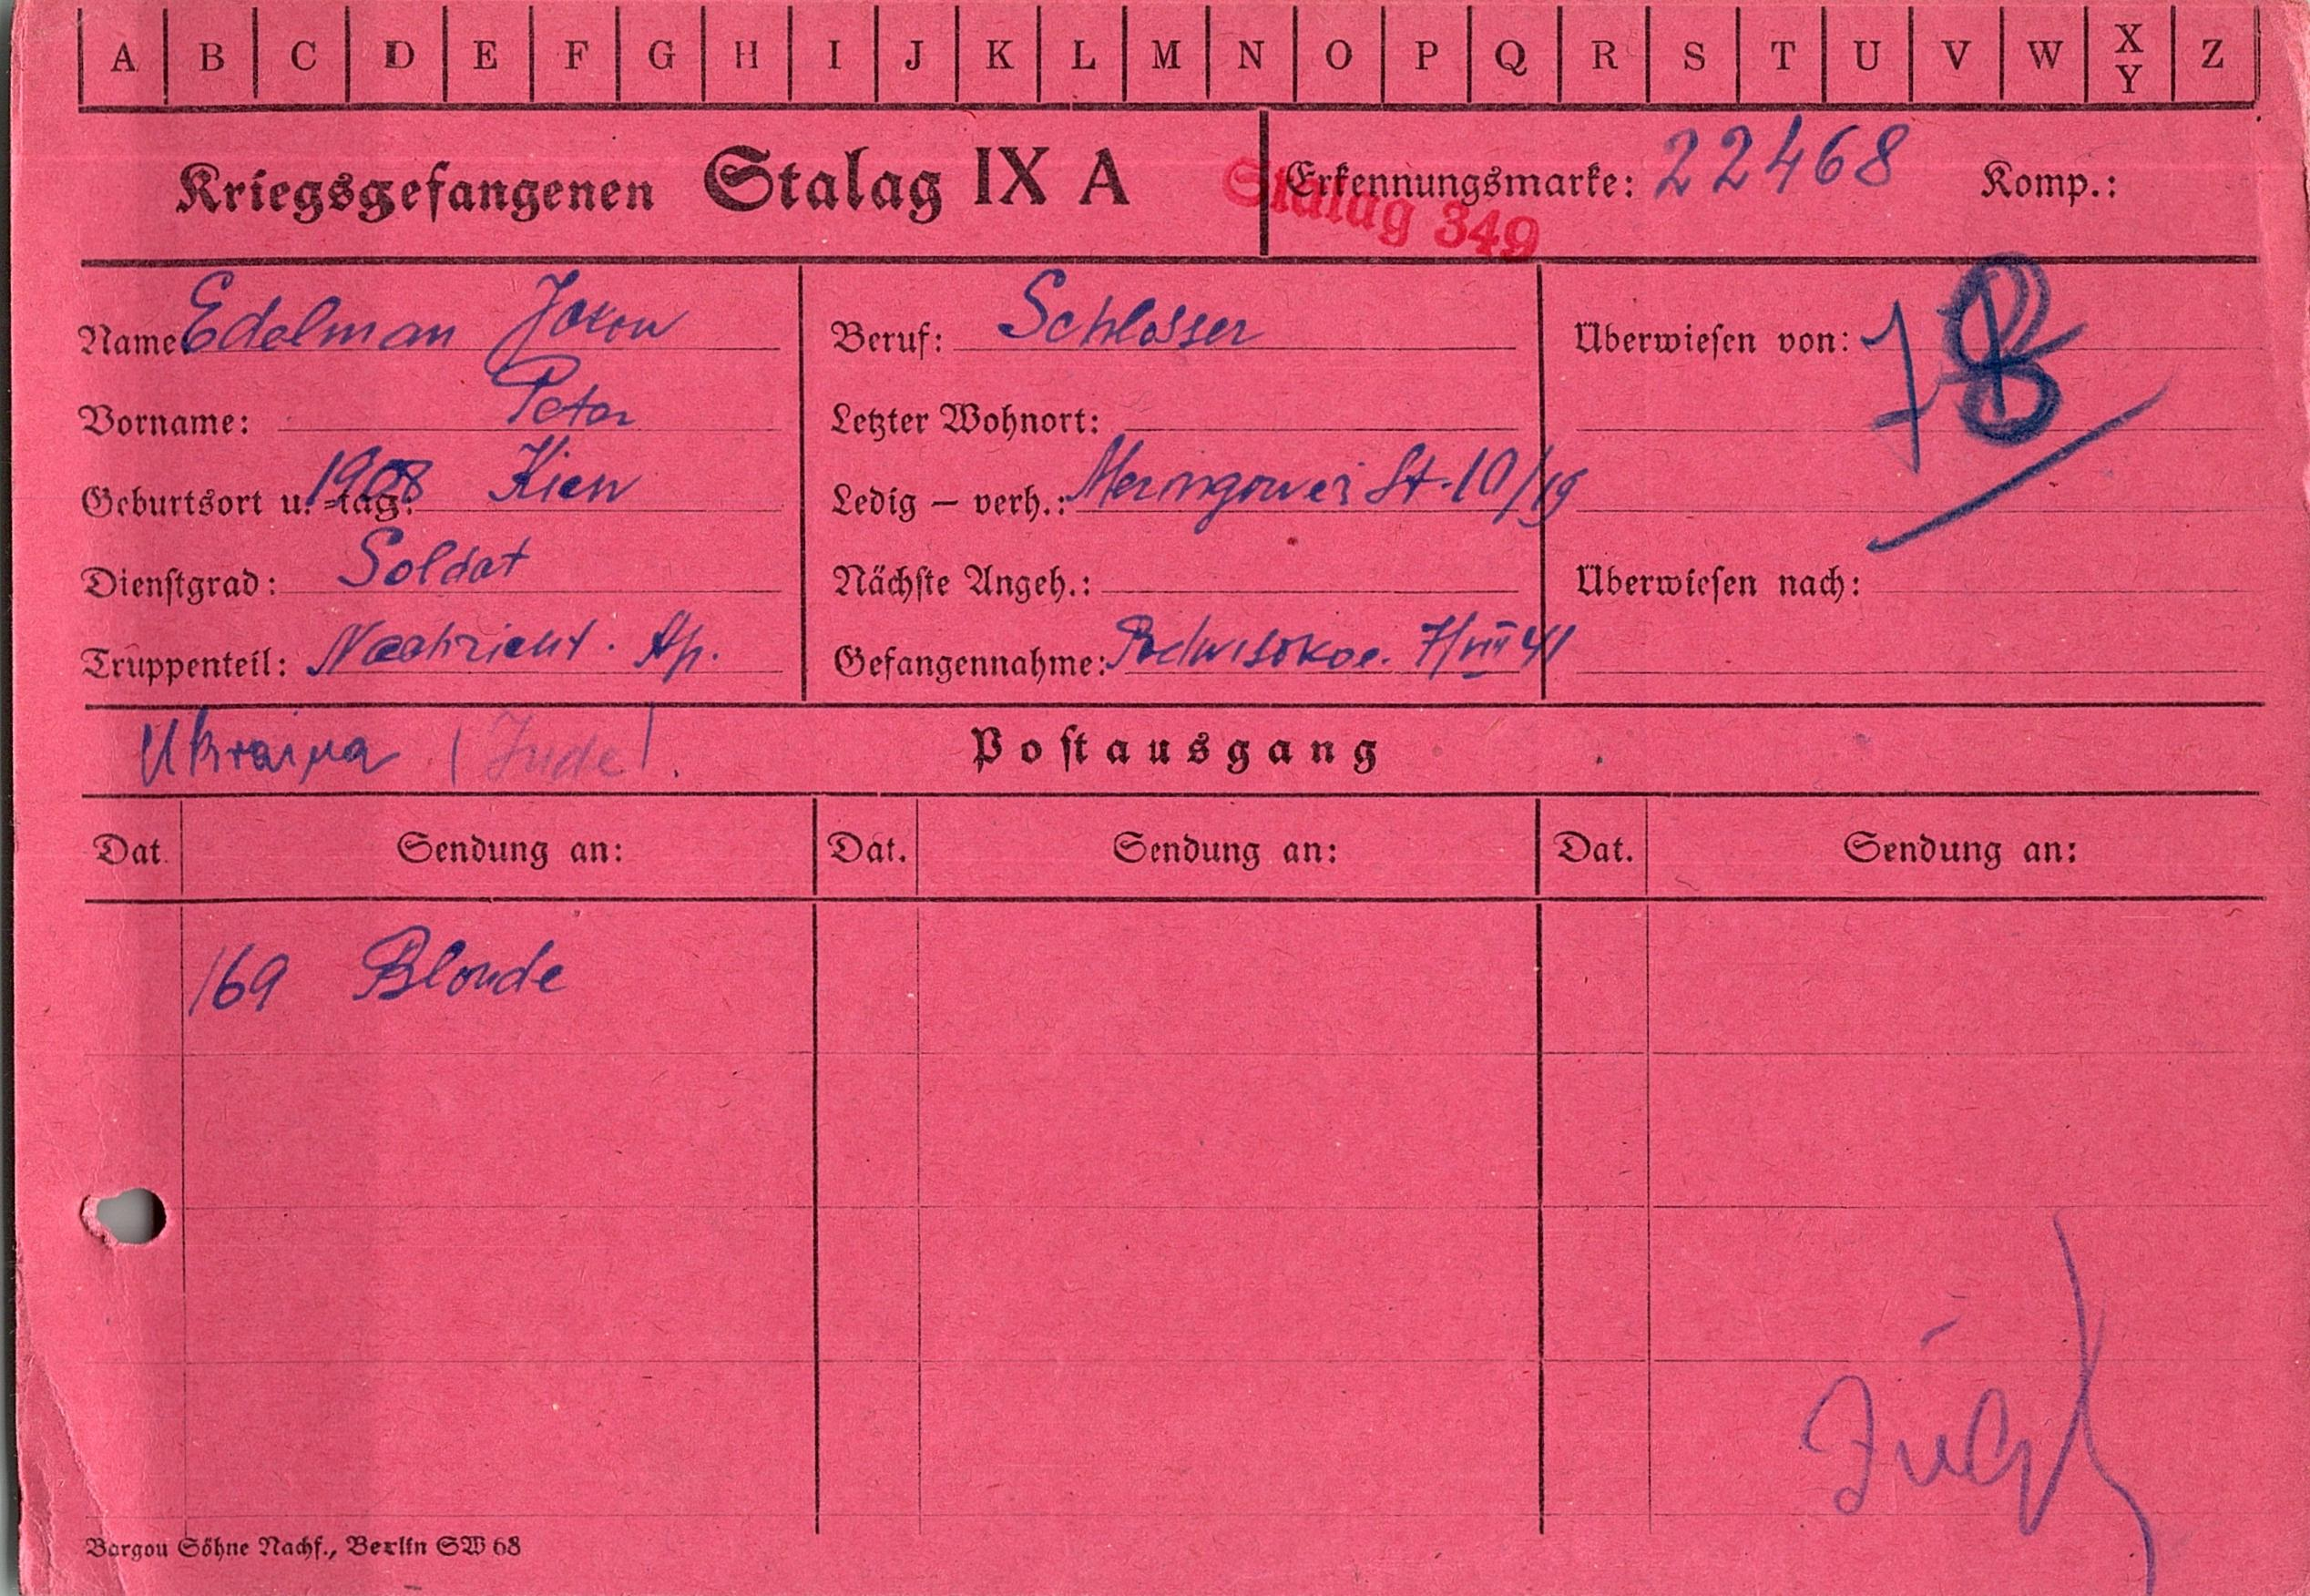 A B C D E F G H I J K L M N O P Q R S T U V W X Y Z
Kriegsgefangenen Stalag IX A
Erkennungsmarke: 22468 Komp.:
Stalag 349
Name Edelman
Vorname: Peter
Geburtsort u. -tag: 1908 Kiew
Dienstgrad: Soldat
Truppenteil: Nachricht.
Beruf: Schlosser
Letzter Wohnort:
Ledig – verh.: St. 10/19
Nächste Angeh.:
Gefangennahme: Podwisokoe. 7/VIII 41
Überwiesen von:
Überwiesen nach:
Ukraina (Jude).
Postausgang
Dat. Sendung an: Dat. Sendung an: Dat. Sendung an:
169 Blonde
Bargou Söhne Nachf., Berlin SW 68